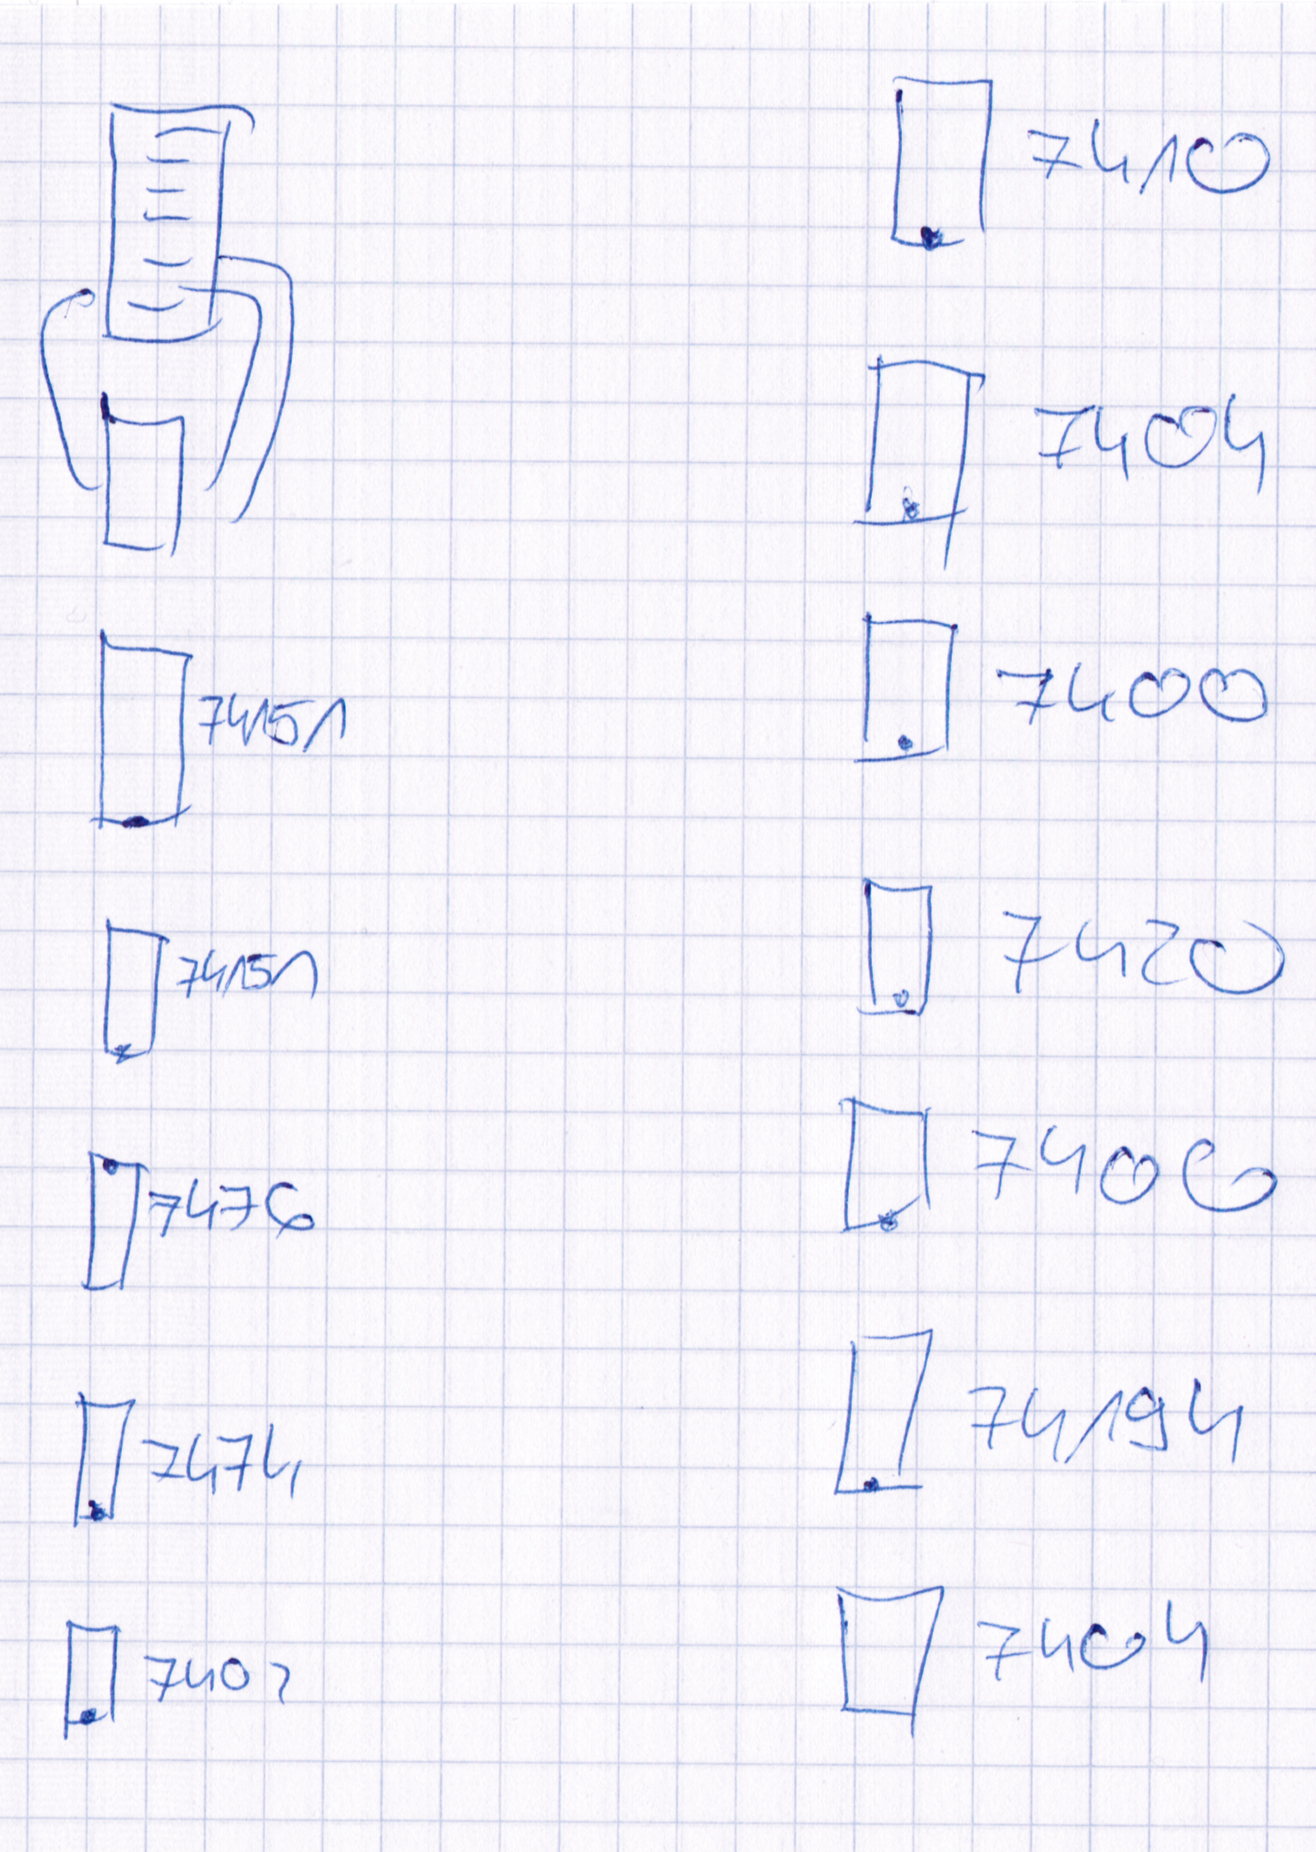 74151
74151
7476
7474
7410
7404
7400
7420
7406
74194
7404